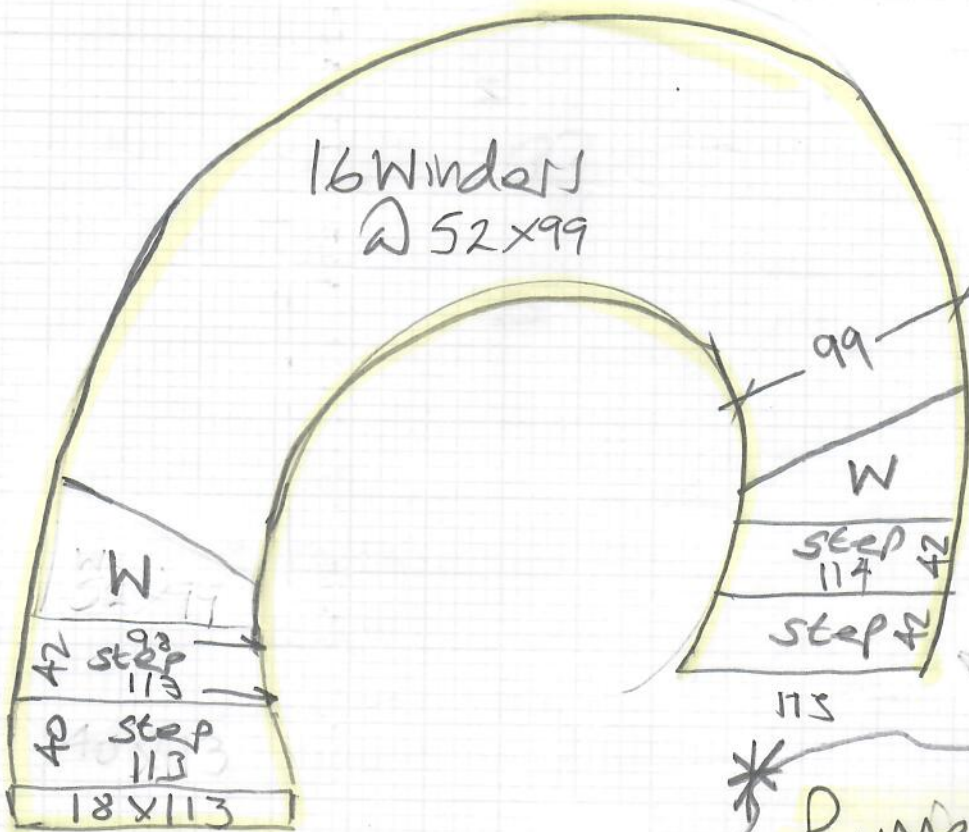 16 Winders
@ 52x99
99
W
step 42
114
step 42
115
W
98
42 step
113
40 step
113
18 X 113